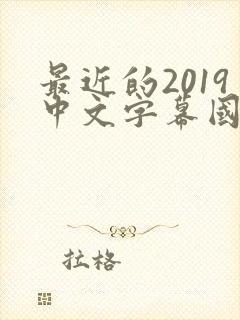 最近的2019
中文字幕國
拉格